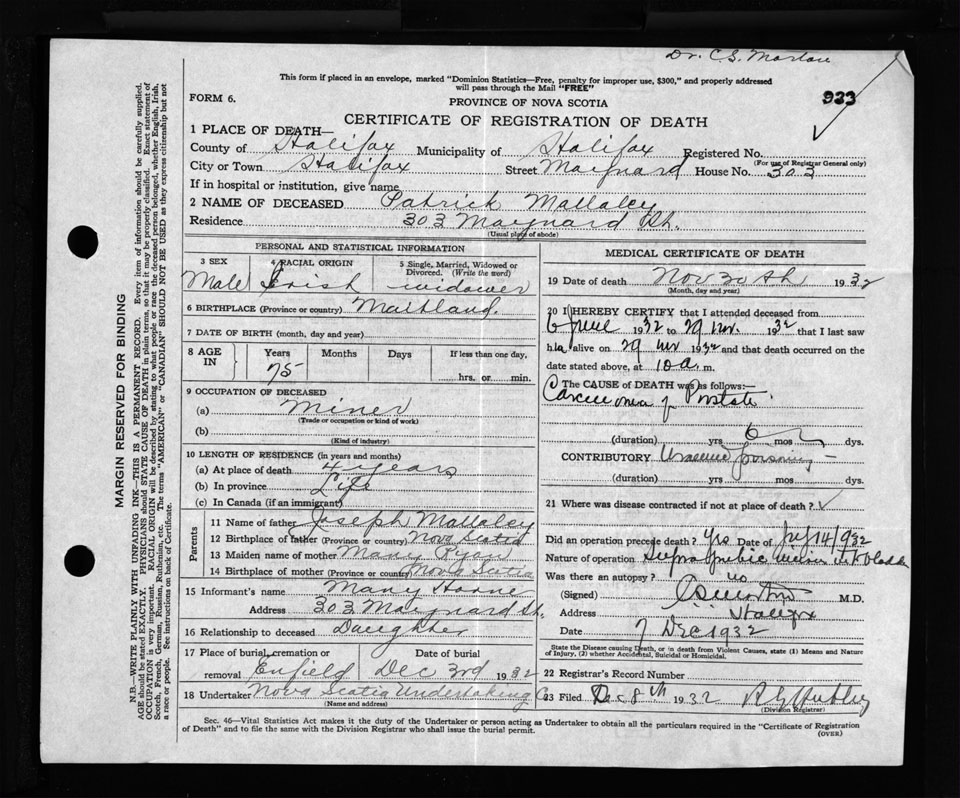 Dr. C.S. Morton
This form if placed in an envelope, marked "Dominion Statistics—Free, penalty for improper use, $300," and properly addressed
will pass through the Mail "FREE"
933
FORM 6.
PROVINCE OF NOVA SCOTIA
CERTIFICATE OF REGISTRATION OF DEATH
1 PLACE OF DEATH—
County of Halifax Municipality of Halifax Registered No.
(For use of Registrar General only)
City or Town Halifax Street Maynard House No. 303
If in hospital or institution, give name
2 NAME OF DECEASED Patrick Mallaley
Residence 303 Maynard St.
(Usual place of abode)
PERSONAL AND STATISTICAL INFORMATION
3 SEX 4 RACIAL ORIGIN 5 Single, Married, Widowed or
Divorced. (Write the word)
Male Irish widower
6 BIRTHPLACE (Province or country) Maitland.
7 DATE OF BIRTH (month, day and year)
8 AGE IN Years Months Days If less than one day,
75 hrs. or min.
9 OCCUPATION OF DECEASED
(a) Miner
(Trade or occupation or kind of work)
(b)
(Kind of industry)
10 LENGTH OF RESIDENCE (in years and months)
(a) At place of death 4 years
(b) In province Life
(c) In Canada (if an immigrant)
Parents
11 Name of father Joseph Mallaley
12 Birthplace of father (Province or country) Nova Scotia
13 Maiden name of mother Mary Ryan
14 Birthplace of mother (Province or country) Nova Scotia
15 Informant's name Mary Horne
Address 303 Maynard St.
16 Relationship to deceased Daughter
17 Place of burial, cremation or removal Date of burial
Enfield Dec 3rd 1932
18 Undertaker Nova Scotia Undertaking Co
(Name and address)
MEDICAL CERTIFICATE OF DEATH
19 Date of death Nov 30th 1932
(Month, day and year)
20 I HEREBY CERTIFY that I attended deceased from
6 June 1932 to 29 Nov. 1932 that I last saw
him alive on 29 Nov 1932 and that death occurred on the
date stated above, at 10 a. m.
The CAUSE OF DEATH was as follows:—
Carcinoma of Prostate
(duration) yrs 6 mos dys.
CONTRIBUTORY Uraemic poisoning
(duration) yrs. mos. dys.
21 Where was disease contracted if not at place of death?
Did an operation precede death? Yes Date of July 14/1932
Nature of operation Suprapubic incision into bladder
Was there an autopsy? no
(Signed) CS Morton M.D.
Address Halifax
Date 7 Dec 1932
State the Disease causing Death, or in death from Violent Causes, state (1) Means and Nature of Injury, (2) whether Accidental, Suicidal or Homicidal.
22 Registrar's Record Number
23 Filed Dec 8th 1932
(Division Registrar)
Sec. 46—Vital Statistics Act makes it the duty of the Undertaker or person acting as Undertaker to obtain all the particulars required in the "Certificate of Registration
of Death" and to file the same with the Division Registrar who shall issue the burial permit.
(OVER)
MARGIN RESERVED FOR BINDING
N.B.—WRITE PLAINLY WITH UNFADING INK—THIS IS A PERMANENT RECORD. Every item of information should be carefully supplied.
AGE should be stated EXACTLY. PHYSICIANS should STATE CAUSE OF DEATH in plain terms, so that it may be properly classified. Exact statement of
OCCUPATION is very important. RACIAL ORIGIN will be described by stating to what people or race the deceased person belonged, whether English, Irish,
Scotch, French, German, Russian, Ruthenian, etc. The terms "AMERICAN" or "CANADIAN" SHOULD NOT BE USED as they express citizenship but not
a race or people. See instructions on back of Certificate.